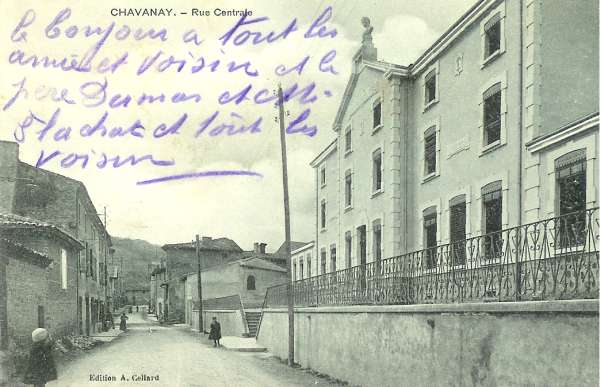 CHAVANAY. - Rue Centrale
le bonjour a tout les
amie et voisin et le
père Dumas et
et tout les
voisin
Edition A. Cellard